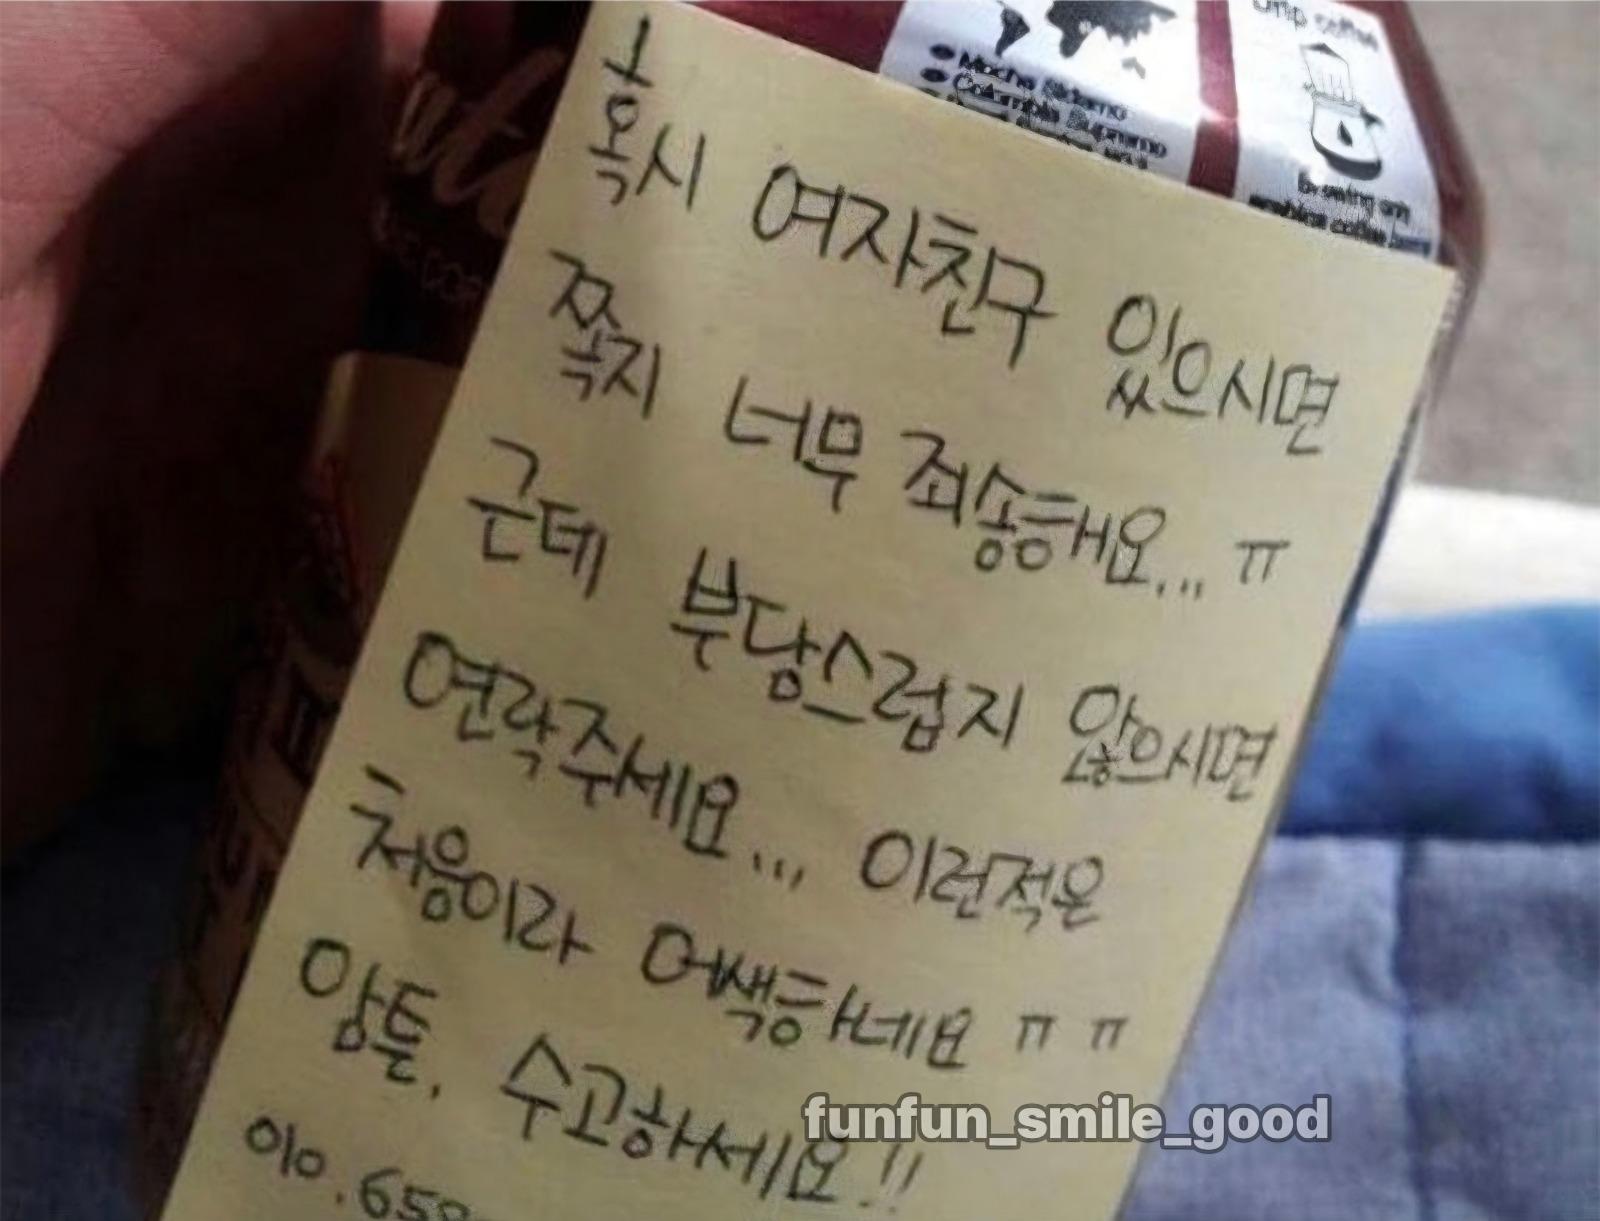 Drip coffee
Mocha Sidamo
Columbia Supremo
Brewing any
arabica coffee beans
혹시 여자친구 있으시면
쪽지 너무 죄송해요... ㅠ
근데 부담스럽지 않으시면
연락주세요... 이런적은
처음이라 어색하네요 ㅠ ㅠ
암튼, 수고하세요!!
010.658
funfun_smile_good